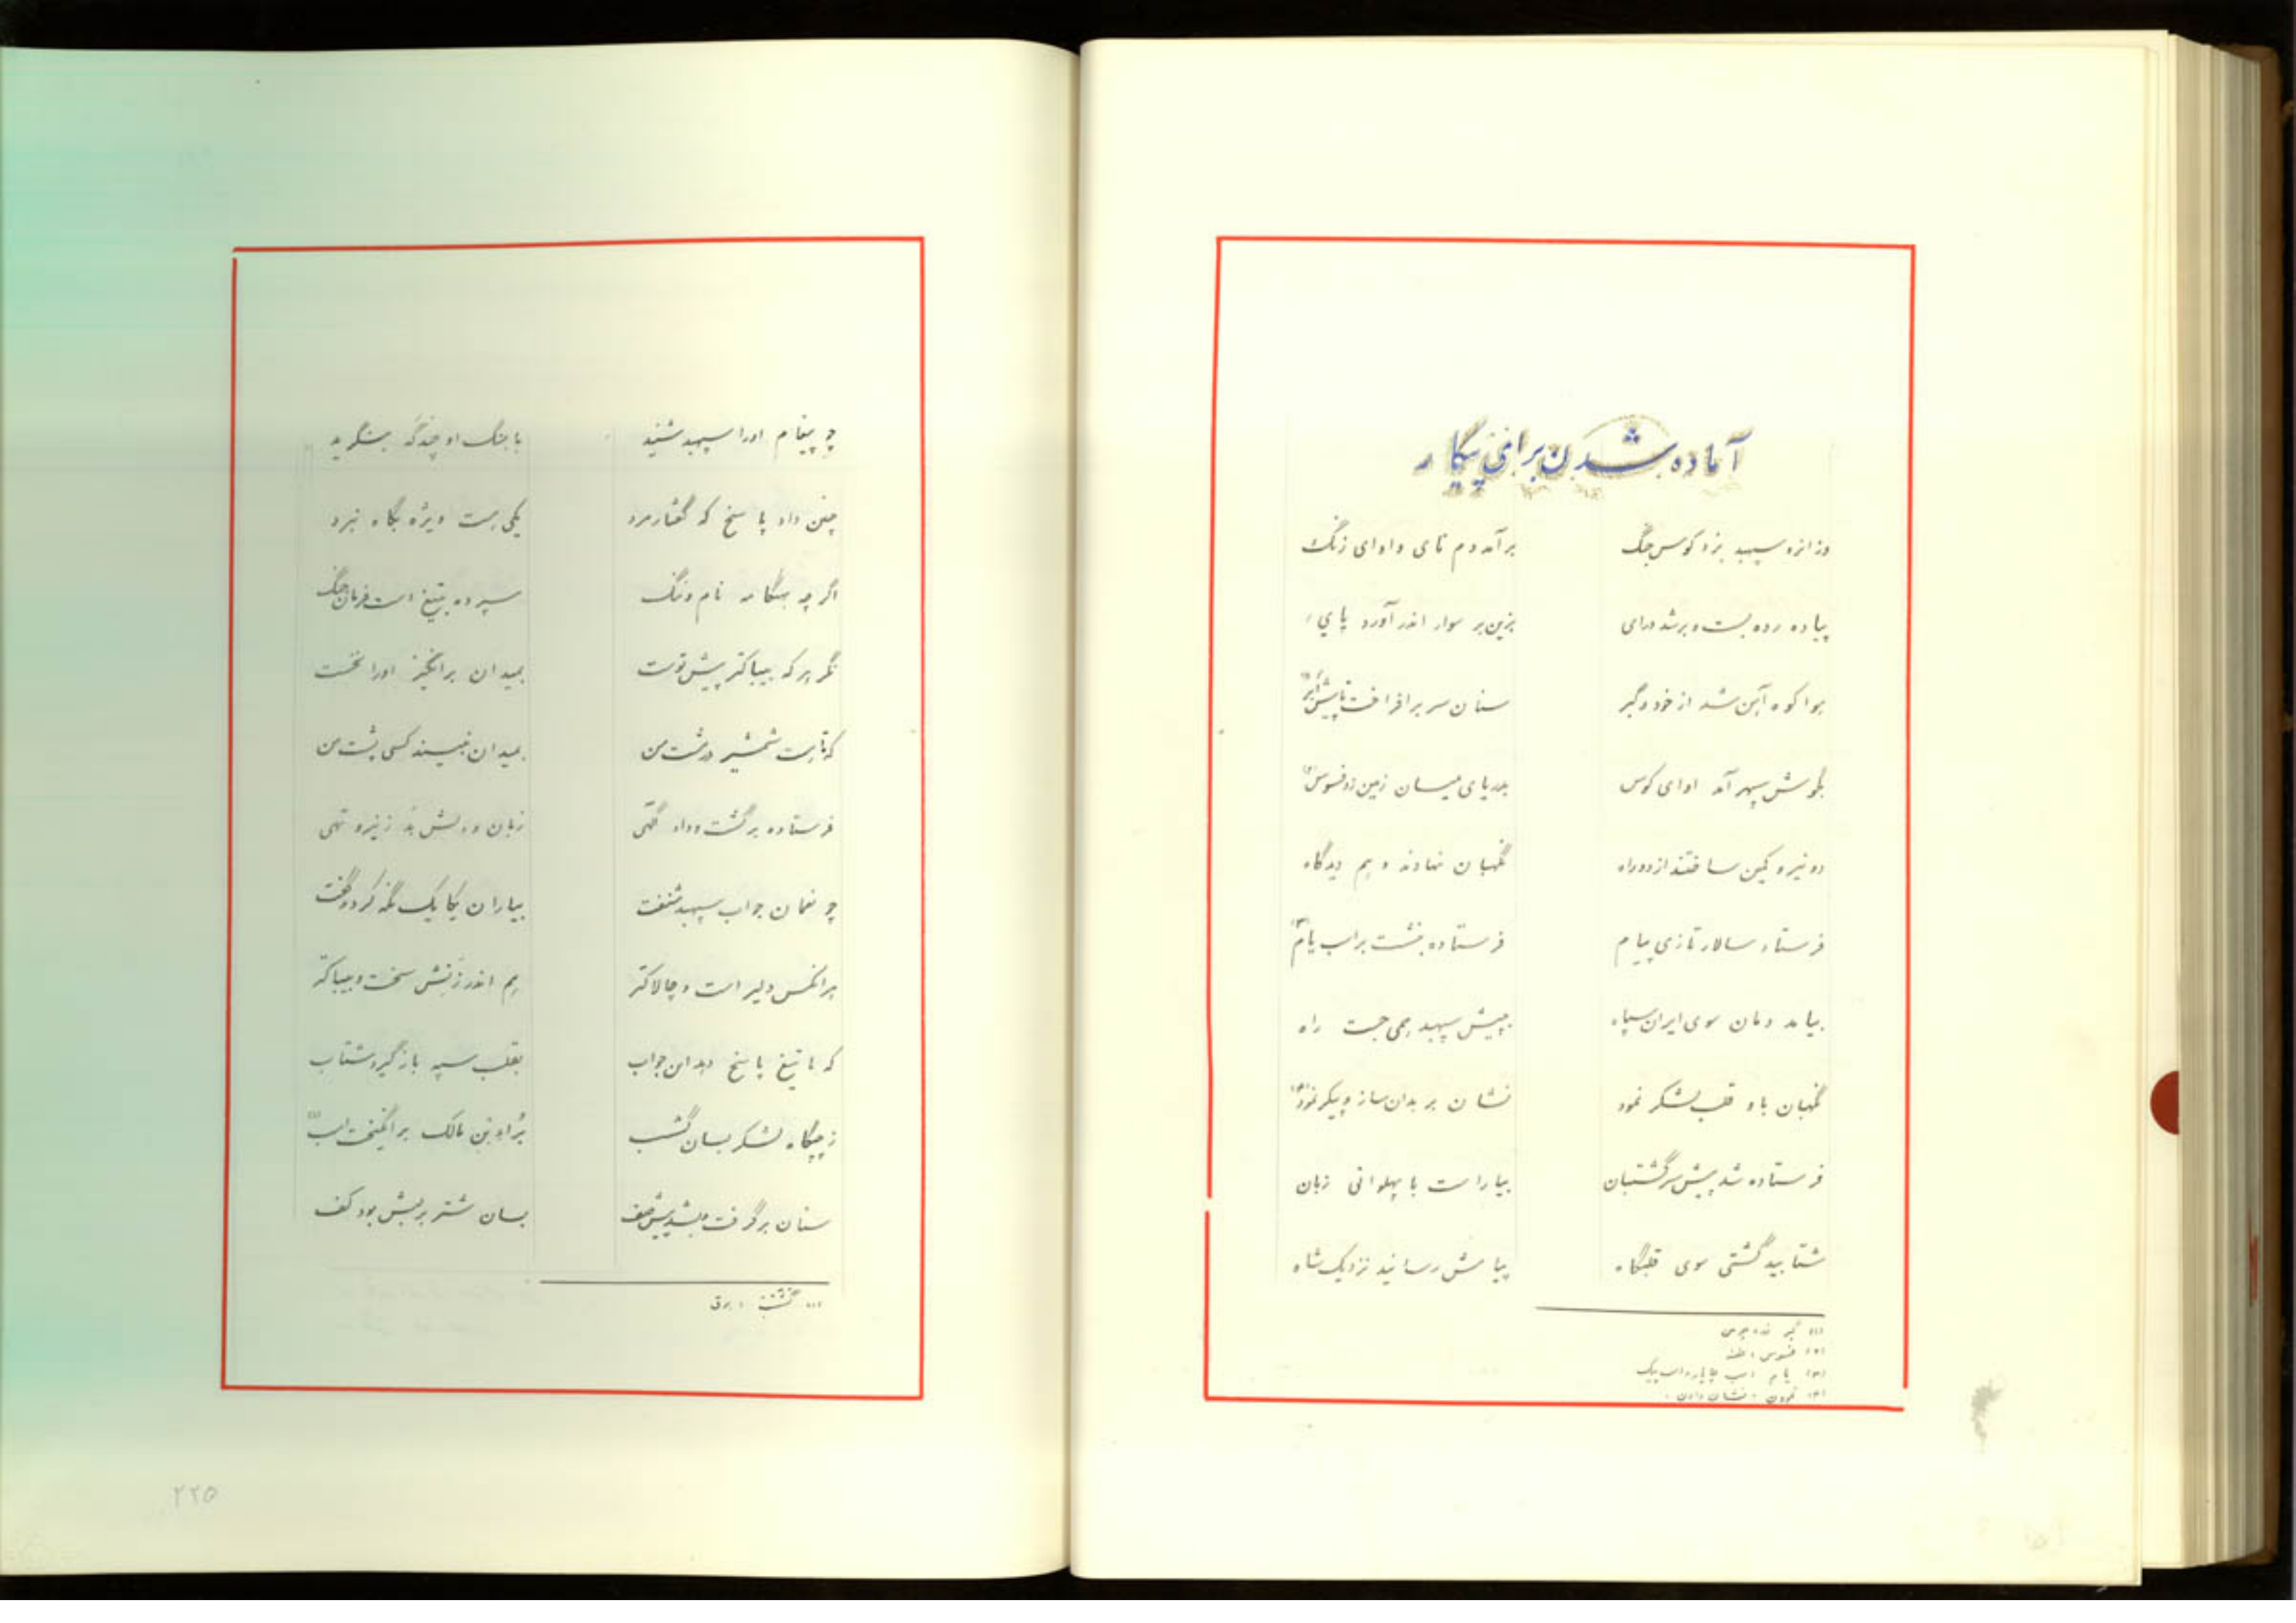 آماده شدن برای پیکار
وز انرو سپهبد بزد کوس جنگ برآمد دم نای و اوای زنگ
پیاده رده بست و بر شد درای بزین بر سوار اندر آورد پای
هوا کوه آهن شد از خود و گبر سنان سر برافراخت تا پیش ابر (۱)
بگوش سپهر آمد اوای کوس بدریای میسان زمین زد فسوس (۲)
دو نیرو کمین ساختند از دو راه نگهبان نهادند و هم دیدگاه
فرستاد سالار تازی پیام فرستاده بنشست بر اسب یام (۳)
بیامد دمان سوی ایران سپاه بپیش سپهبد همی جست راه
نگهبان باو قلب لشکر نمود نشان بر بدان ساز و پیکر نمود (۴)
فرستاده شد پیش سرگشتبان بیاراست با پهلوانی زبان
شتابید گشتی سوی قلبگاه پیامش رسانید نزدیک شاه
(۱) گبر زره جوشن
(۲) فسوس : طعنه
(۳) یام : اسب چاپار و اسب پیک
(۴) نمودن : نشان دادن .
چو پیغام اورا سپهبد شنید باهنگ او چندگه بنگرید
چنین داد پاسخ که گفتار مرد یکی هست ویژه بگاه نبرد
اگر چه هنگامه نام و ننگ سپرده بتیغ است فرمان جنگ
نگر هر که بیباکتر پیش توست بمیدان برانگیز اورا نخست
که تا هست شمشیر در مشت من بمیدان نبیند کسی پشت من
فرستاده برگشت و داد آگهی زبان و دلش بد ز نیرو تهی
چو نعمان جواب سپهبد شنفت بیاران یکایک نگه کرد و گفت
هرانکس دلیر است و چالاکتر هم اندر زنش سخت و بیباکتر
که با تیغ پاسخ دهد این جواب بقلب سپه باز گیرد شتاب
ز جنگاه لشکر بسان گشسب براء بن مالک برانگیخت اسب (۱)
سنان برگرفت و بشد پیش صف بسان شتر بر لبش بود کف
(۱) گشسب : برق
۲۲۵